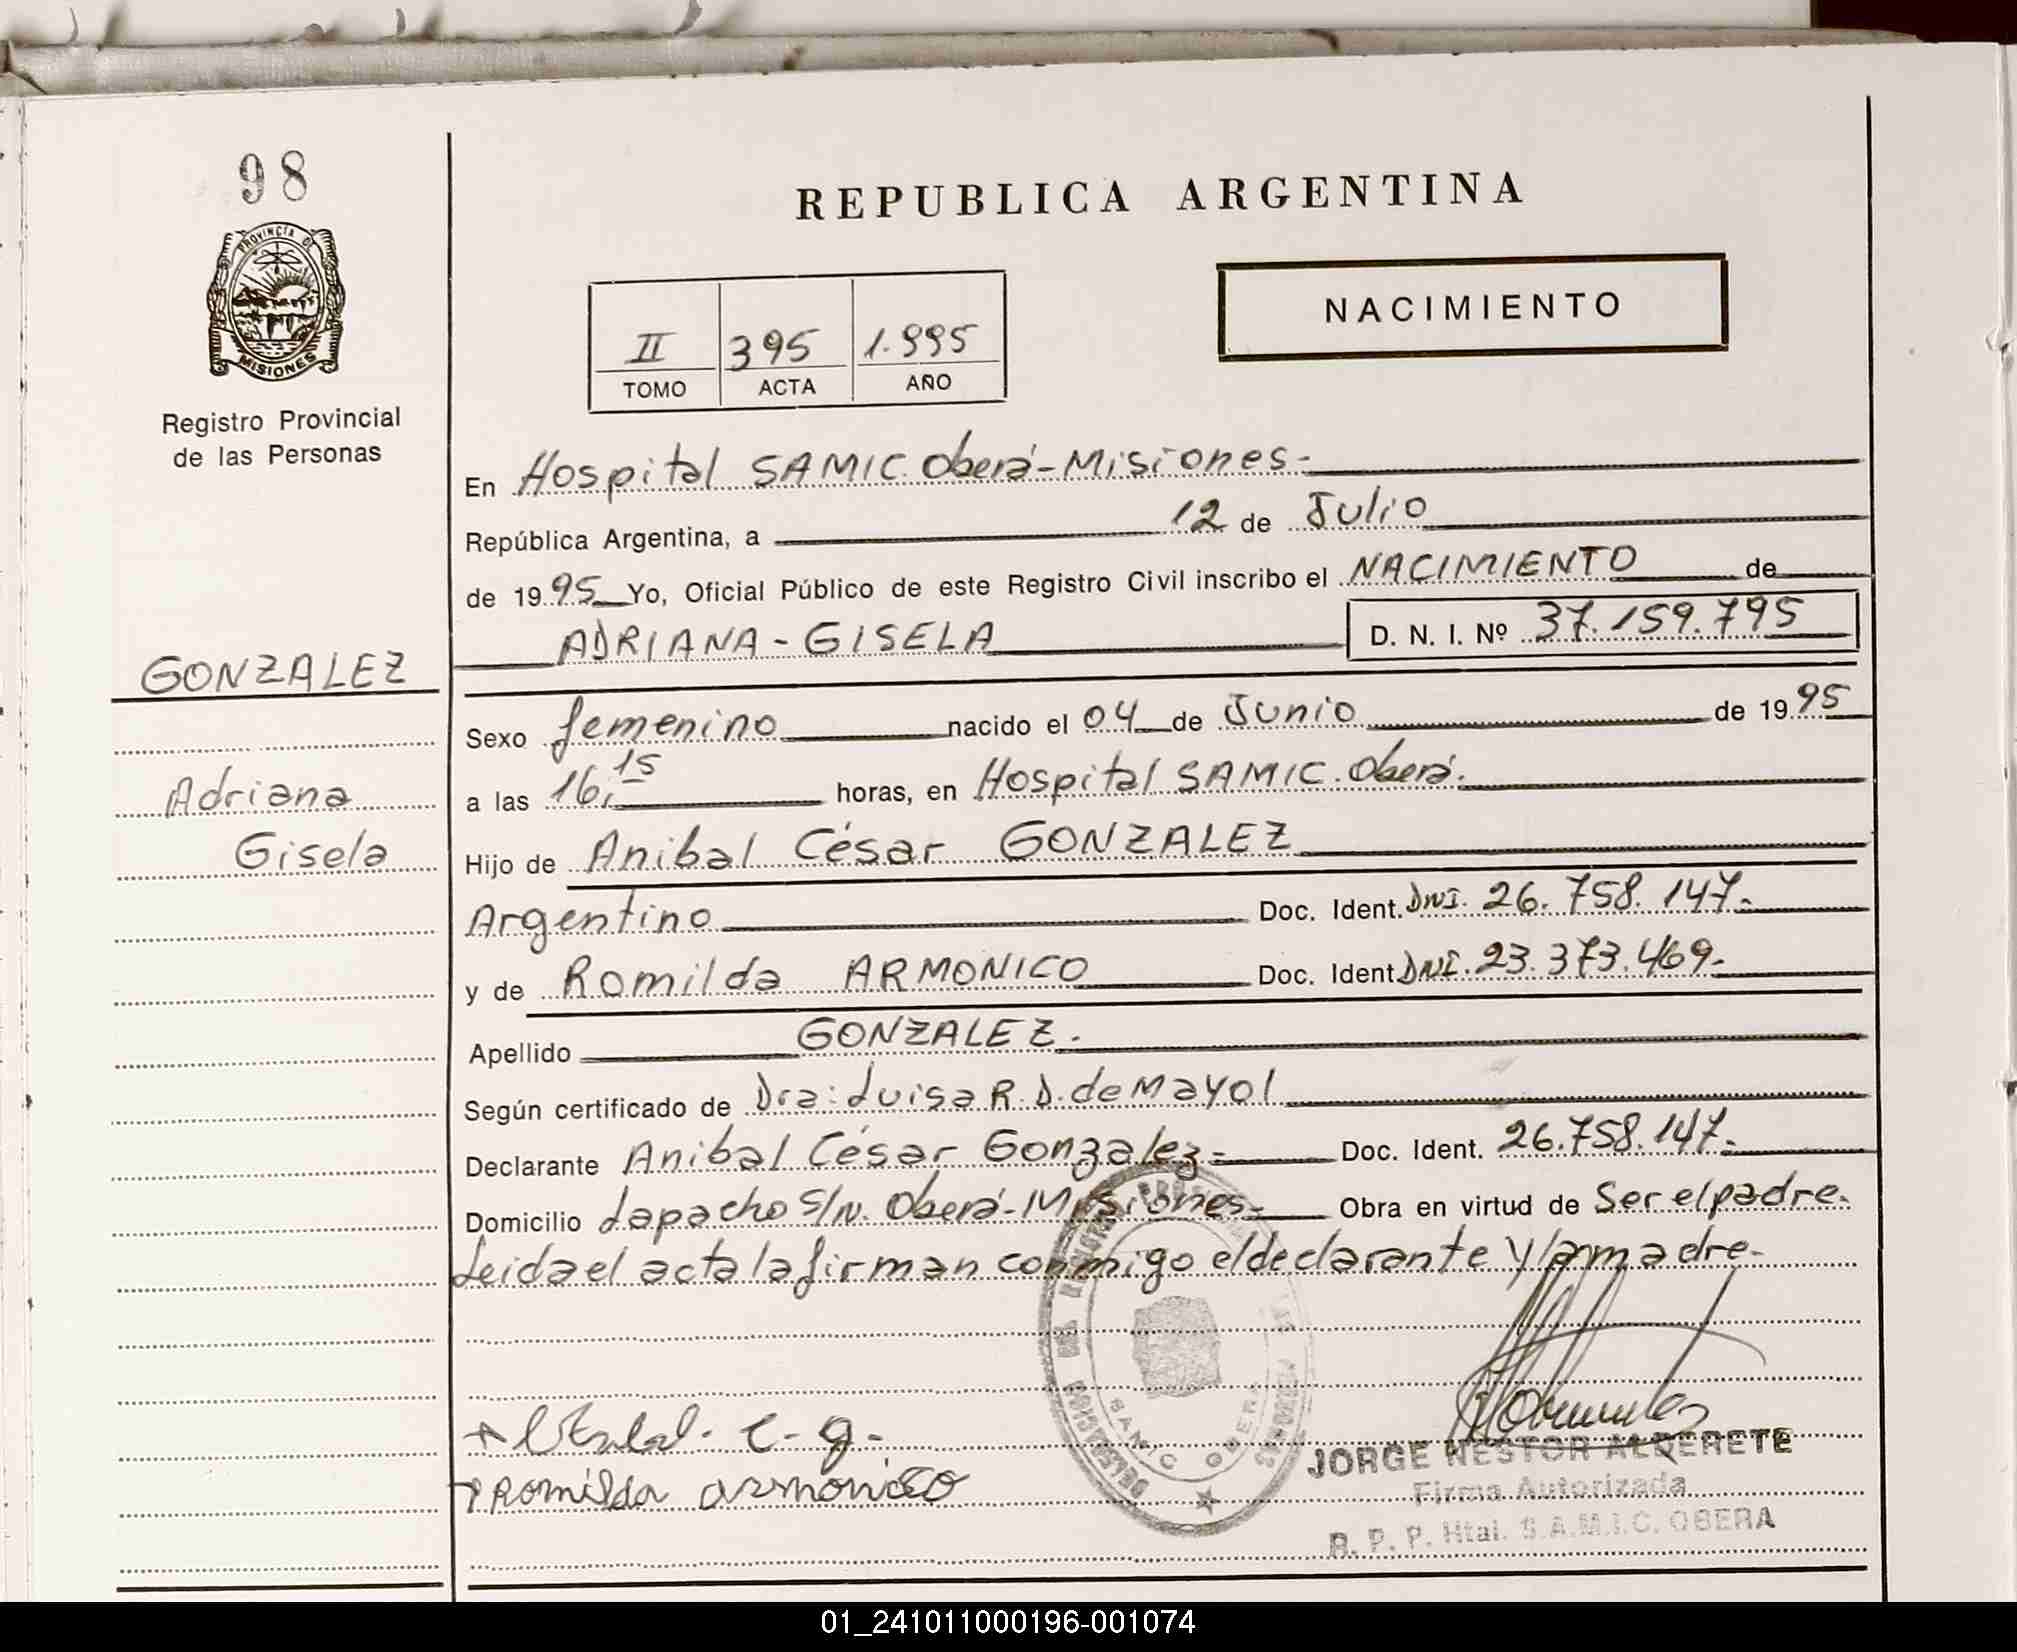 98
PROVINCIA DE
MISIONES
Registro Provincial
de las Personas
GONZALEZ
Adriana
Gisela
REPUBLICA ARGENTINA
NACIMIENTO
II 395 1.995
TOMO ACTA AÑO
En Hospital SAMIC. Oberá-Misiones-
República Argentina, a 12 de Julio
de 1995 Yo, Oficial Público de este Registro Civil inscribo el NACIMIENTO de
ADRIANA-GISELA D. N. I. Nº 37.159.795
Sexo femenino nacido el 04 de Junio de 1995
a las 16,15 horas, en Hospital SAMIC. Oberá.
Hijo de Anibal César GONZALEZ
Argentino Doc. Ident. DNI. 26.758.147.-
y de Romilda ARMONICO Doc. Ident. DNI. 23.373.469-
Apellido GONZALEZ.
Según certificado de Dra: Luisa R. D. de Mayol
Declarante Anibal César Gonzalez- Doc. Ident. 26.758.147.-
Domicilio Lapacho S/N. Oberá-Misiones- Obra en virtud de Ser el padre.
Leida el acta la firman conmigo el declarante y la madre-
Romilda armonico
SAMIC OBERA
JORGE NESTOR ALDERETE
Firma Autorizada
R. P. P. Htal. S.A.M.I.C. OBERA
01_241011000196-001074